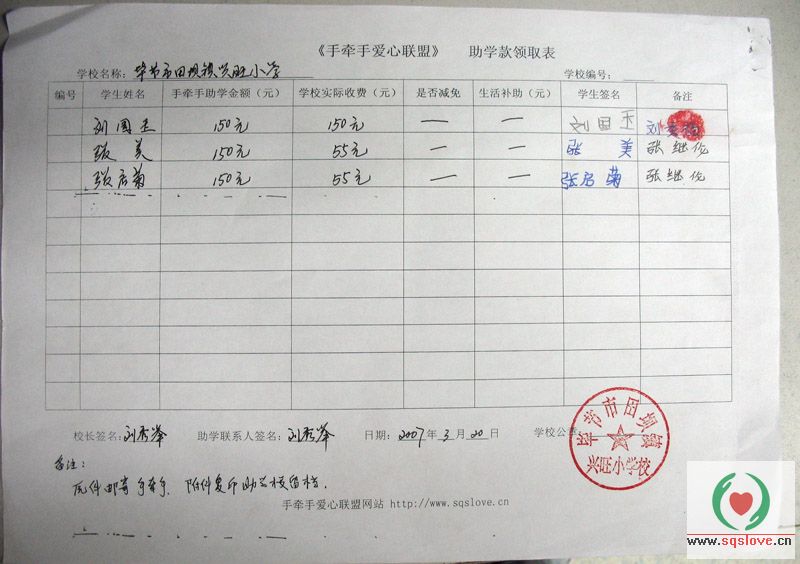 《手牵手爱心联盟》 助学款领取表
学校名称：毕节市田坝镇兴旺小学 学校编号：
编号 学生姓名 手牵手助学金额（元） 学校实际收费（元） 是否减免 生活补助（元） 学生签名 备注
刘国玉 150元 150元 — — 刘国玉 刘
张美 150元 55元 — — 张美 张继伦
张启菊 150元 55元 — — 张启菊 张继伦
校长签名：刘秀举 助学联系人签名：刘秀举 日期：2007年3月20日 学校公章：
毕节市田坝镇
兴旺小学校
备注：
原件邮寄手牵手，附件复印助学校留档。
手牵手爱心联盟网站 http://www.sqslove.cn
www.sqslove.cn